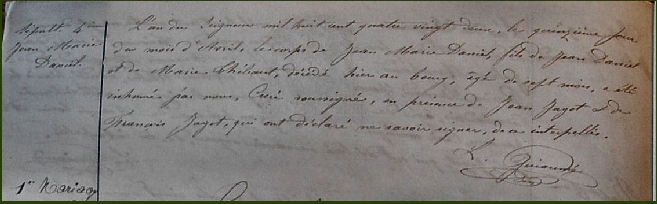 Sépult. 4ème
Jean Marie
Daniel.
L'an du Seigneur mil huit cent quatre vingt deux, le quinzième jour
du mois d'Avril, le corps de Jean Marie Daniel, fils de Jean Daniel
et de Marie Théhaut, décédé hier au bourg, âgé de sept mois, a été
inhumé par nous, Curé soussigné, en présence de Jean Jagot & de
François Jagot, qui ont déclaré ne savoir signer, de ce interpellés.
L.
1er Mariage